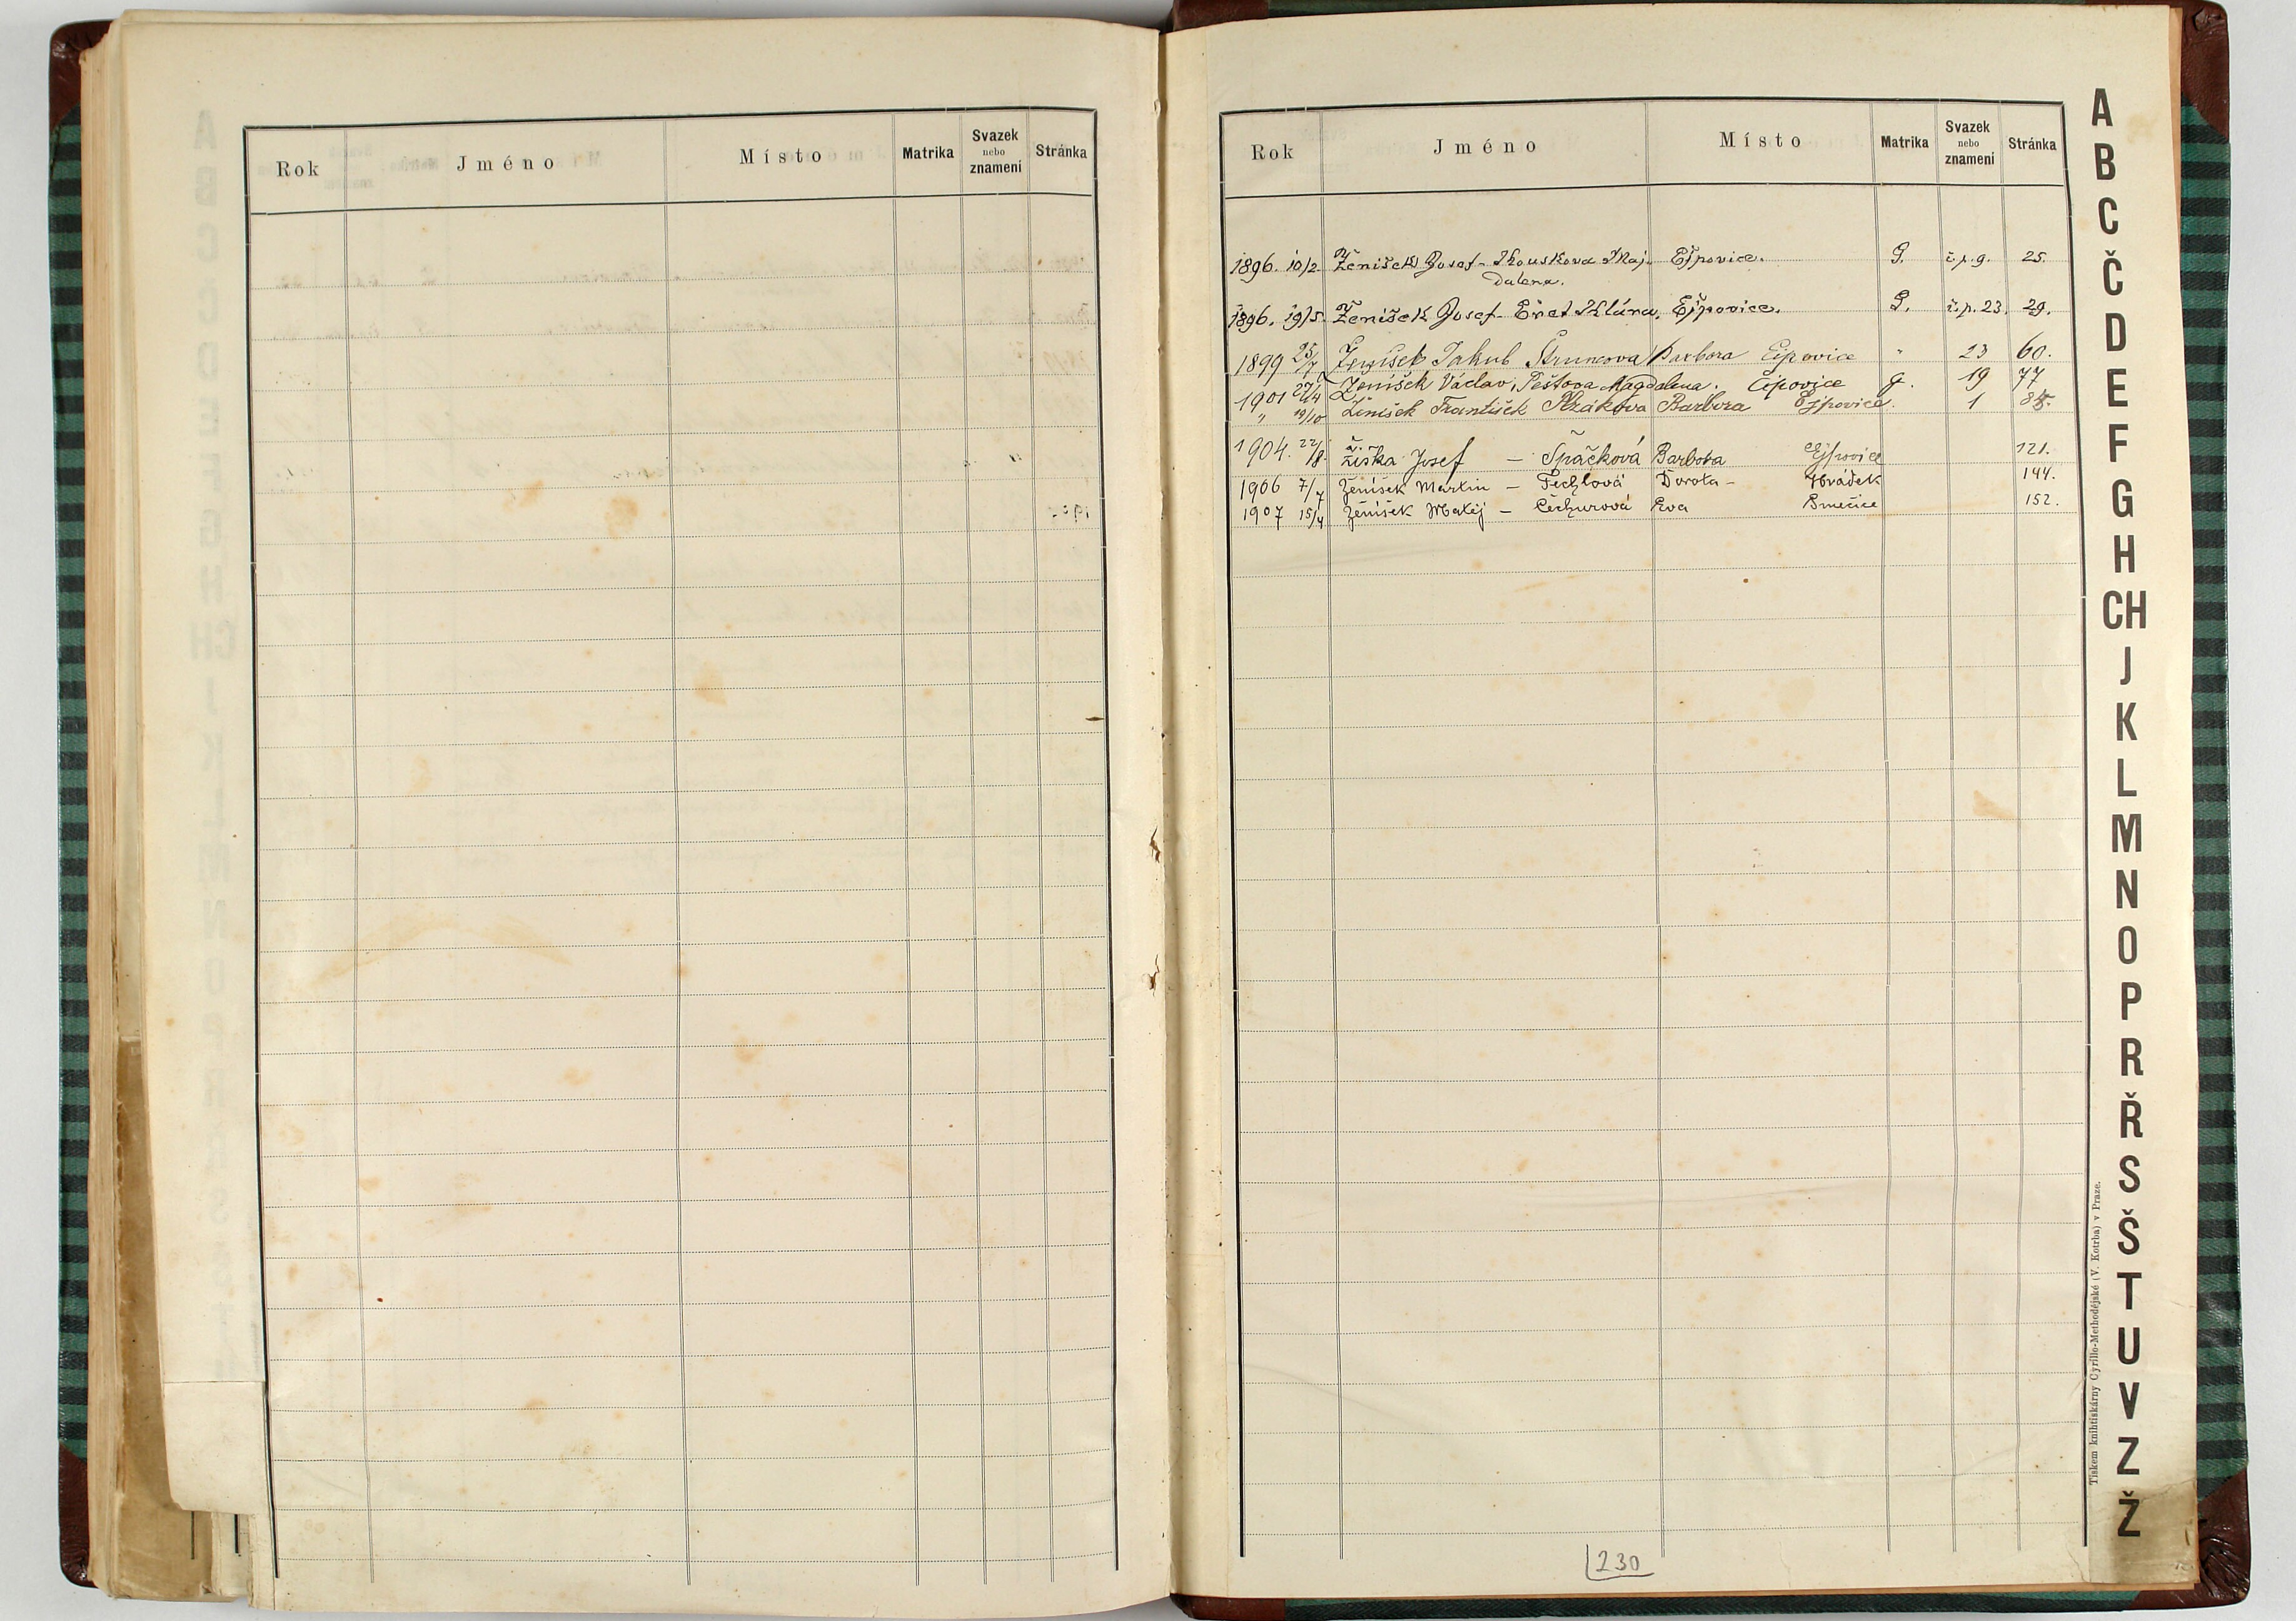 Rok Jméno Místo Matrika Svazek nebo znamení Stránka
Rok Jméno Místo Matrika Svazek nebo znamení Stránka
1896. 10/2 Ženíšek Josef - Kouskova Maj- Ejpovice. G. č.p. 9. 25.
dalena.
1896. 19/5. Ženíšek Josef - Klára, Ejpovice. G. č.p. 23. 29.
1899 25/7 Ženíšek Jakub Štruncova Barbora Ejpovice " 23 60.
1901 27/4 Ženíšek Václav, Peštova Magdalena. Ejpovice G. 19 77
" 19/10 Ženíšek František Barbora Ejpovice. 1
1904. 22/8 Žiška Josef — Špačková Barbora Ejpovice 121.
1906 7/7 Ženíšek Martin — Techlová Dorota - Hrádek 144.
1907 15/4 Ženíšek Matěj — Čechurová Eva 152.
A
B
C
Č
D
E
F
G
H
CH
J
K
L
M
N
O
P
R
Ř
S
Š
T
U
V
Z
Ž
Tiskem knihtiskárny Cyrillo-Methodějské (V. Kotrba) v Praze.
230